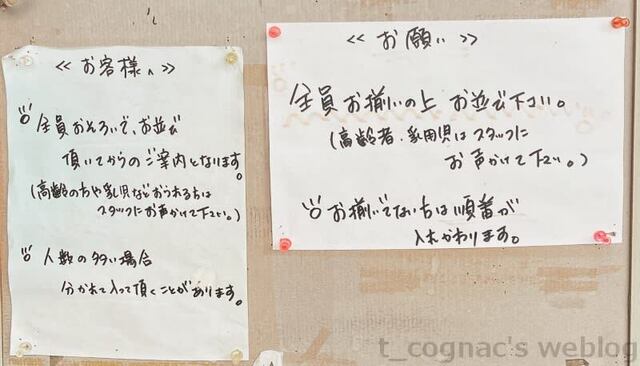 ≪お客様へ≫
全員おそろいで、お並び
頂いてからのご案内となります。
(高齢の方や乳児などおられる方は
スタッフにお声かけて下さい。)
人数の多い場合
分かれて入って頂くことがあります。
≪お願い≫
全員お揃いの上 お並び下さい。
(高齢者・乳幼児はスタッフに
お声かけて下さい。)
お揃いでない方は順番が
入れかわります。
t_cognac's weblog